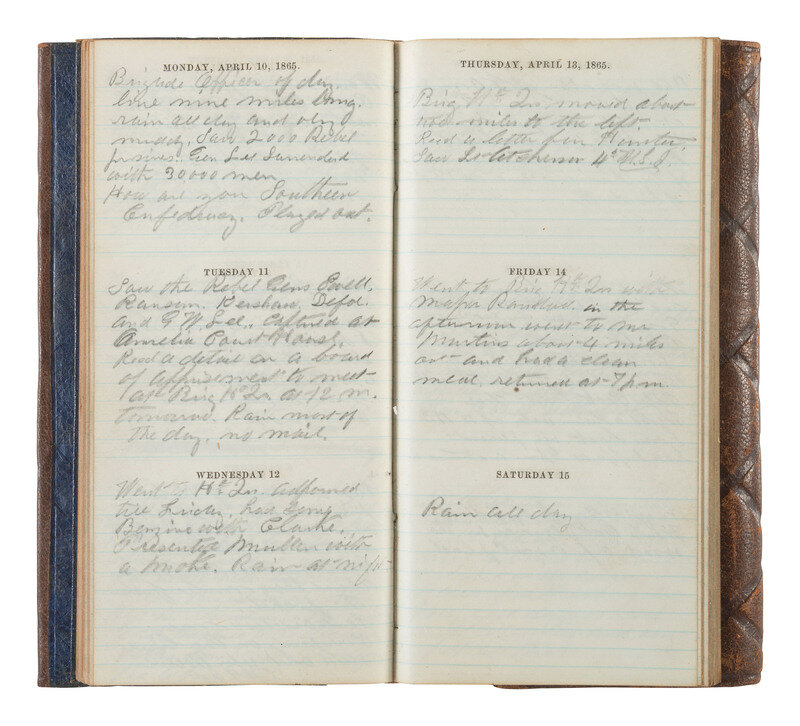 MONDAY, APRIL 10, 1865.
Brigade Officer of day.
line nine miles long.
rain all day and very
muddy. Saw 2000 Rebel
Gen Lee Surrendered
with 30000 men
How are you Southern
Confederacy. Played out.
TUESDAY 11
Saw the Rebel Gens Ewell,
Ransom. Kershaw, Defoe.
and G W Lee., captured at
Amelia Court House.
Recd a detail on a board
of apprisement to meet
at Brig Hd Qrs at 12 m.
tomorrow. Rain most of
the day. no mail.
WEDNESDAY 12
Went to Hd Qrs adjorned
till Friday. had some
with Clarke.
Presented Mullen with
a smoke. Rain at night
THURSDAY, APRIL 13, 1865.
Brig Hd Qrs moved about
two miles to the left.
Recd a letter from
Saw Lt 4th U.S.I.
FRIDAY 14
Went to Brig Hd Qrs with
Major in the
afternoon went to Mr
Martins about 4 miles
out and had a clean
meal, returned at 7 pm.
SATURDAY 15
Rain all day